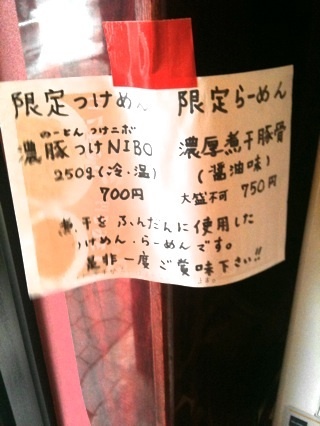 限定つけめん
のーとん つけニボ
濃豚つけNIBO
250g(冷・温)
700円
限定らーめん
濃厚煮干豚骨
(醤油味)
大盛不可 750円
煮干をふんだんに使用した
つけめん・らーめんです。
是非一度ご賞味下さい!!